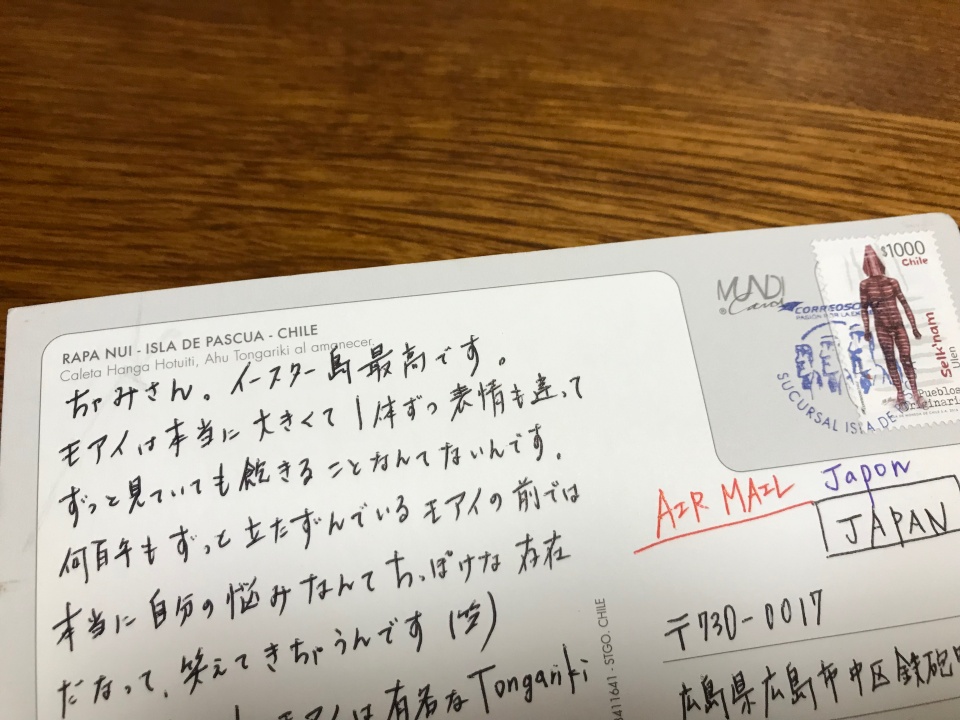 RAPA NUI - ISLA DE PASCUA - CHILE
Caleta Hanga Hotuiti, Ahu Tongariki al amanecer.
ちゃみさん。イースター島最高です。
モアイは本当に大きくて1体ずつ表情も違って
ずっと見ていても飽きることなんてないんです。
何百年もずっと立たずんでいるモアイの前では
本当に自分の悩みなんてちっぽけな存在
だなって、笑えてきちゃうんです(笑)
モアイは有名なTongariki
MUNDI
Cards
$1000
Chile
Selk'nam
Ulen
Pueblos
Originari
CORREOSC
SUCURSAL ISLA DE
AIR MAIL
Japon
JAPAN
〒730-0017
広島県広島市中区鉄砲
3411641 - STGO. CHILE